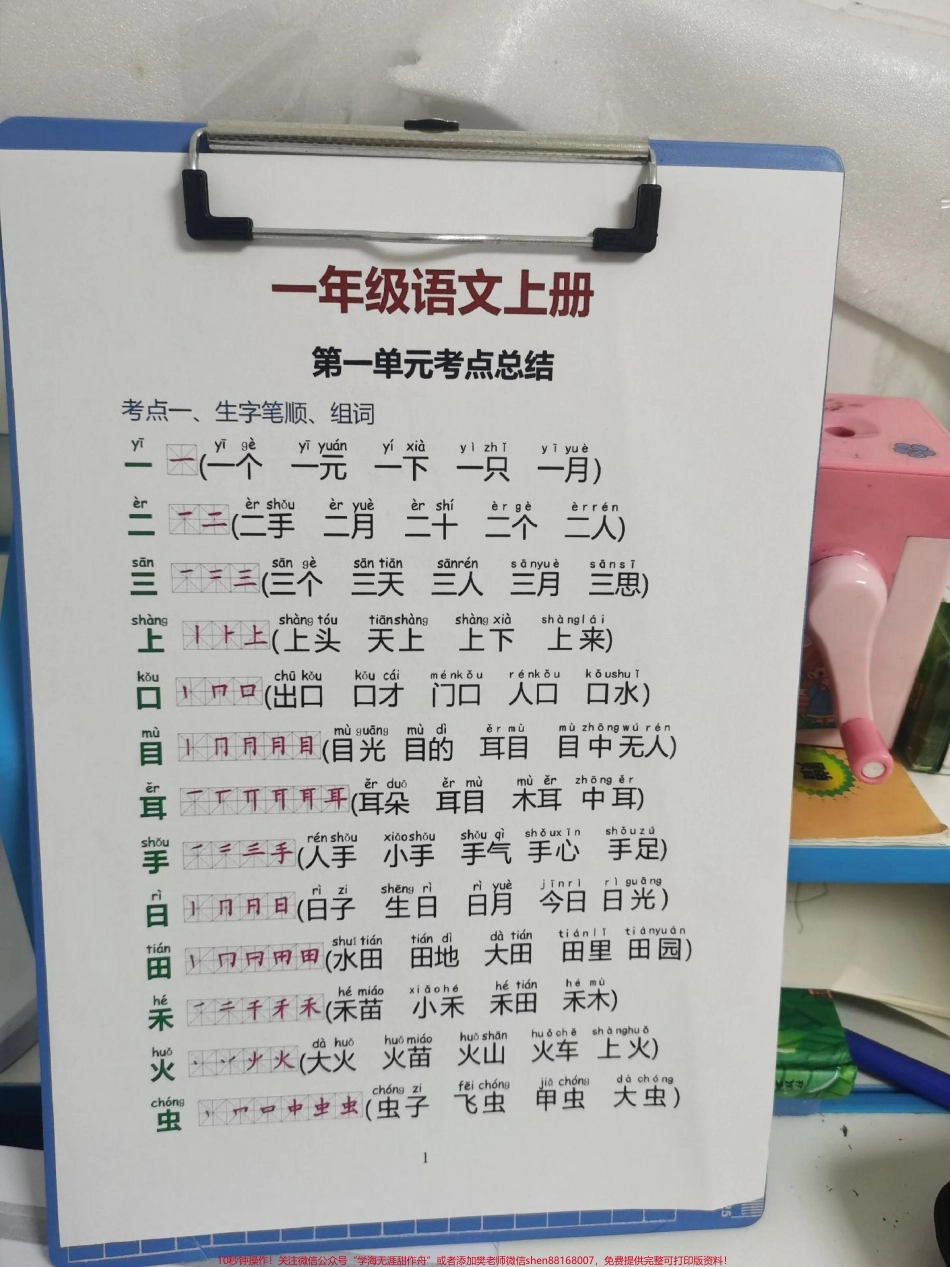 一年级语文上册
第一单元考点总结
考点一、生字笔顺、组词
yī yī gè yī yuán yí xià yì zhī yī yuè
一 一(一个 一元 一下 一只 一月)
èr èr shǒu èr yuè èr shí èr gè èr rén
二 一二(二手 二月 二十 二个 二人)
sān sān gè sān tiān sānrén sānyuè sānsī
三 一二三(三个 三天 三人 三月 三思)
shàng shàng tóu tiānshàng shàng xià shànglái
上 丨⺊上(上头 天上 上下 上来)
kǒu chū kǒu kǒu cái ménkǒu rénkǒu kǒushuǐ
口 丨冂口(出口 口才 门口 人口 口水)
mù mù guāng mù dì ěr mù mù zhōngwúrén
目 丨冂月月目(目光 目的 耳目 目中无人)
ěr ěr duǒ ěr mù mù ěr zhōng ěr
耳 耳(耳朵 耳目 木耳 中耳)
shǒu rénshǒu xiǎoshǒu shǒu qì shǒuxīn shǒuzú
手 手(人手 小手 手气 手心 手足)
rì rì zi shēng rì rì yuè jīnrì rì guāng
日 丨冂月日(日子 生日 日月 今日 日光)
tián shuǐ tián tián dì dà tián tiánlǐ tiányuán
田 丨冂田(水田 田地 大田 田里 田园)
hé hé miáo xiǎohé hé tián hé mù
禾 一二千禾禾(禾苗 小禾 禾田 禾木)
huǒ dà huǒ huǒ miáo huǒ shān huǒ chē shànghuǒ
火 丶丷火火(大火 火苗 火山 火车 上火)
chóng chóng zi fēi chóng jiǎ chóng dà chóng
虫 丶口中虫虫(虫子 飞虫 甲虫 大虫)
1
10秒钟操作！关注微信公众号“学海无涯甜作舟”或者添加樊老师微信shen88168007，免费提供完整可打印版资料！